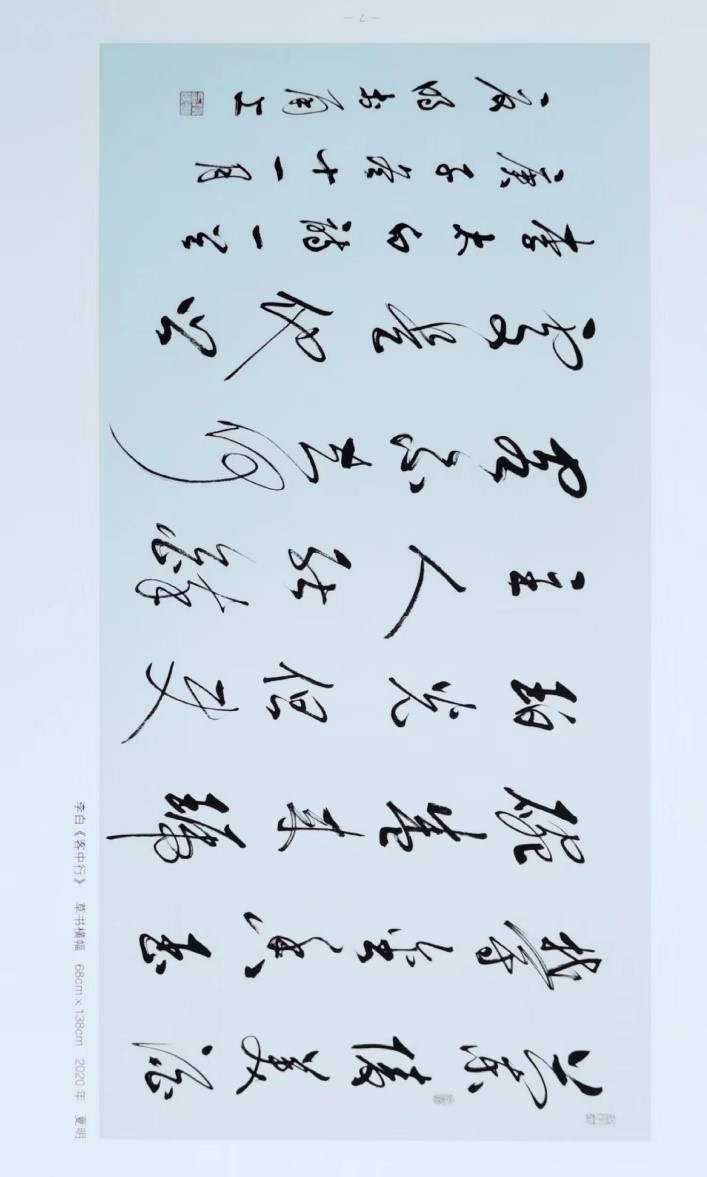 蘭陵美酒
鬱金香玉
碗盛来琥
珀光但使
主人能醉
客不知何
處是他鄉
李太白詩一首
庚子冬十一月
夏明书甬上
李白《客中行》 草书横幅 68cm×138cm 2020年 夏明
— 7 —